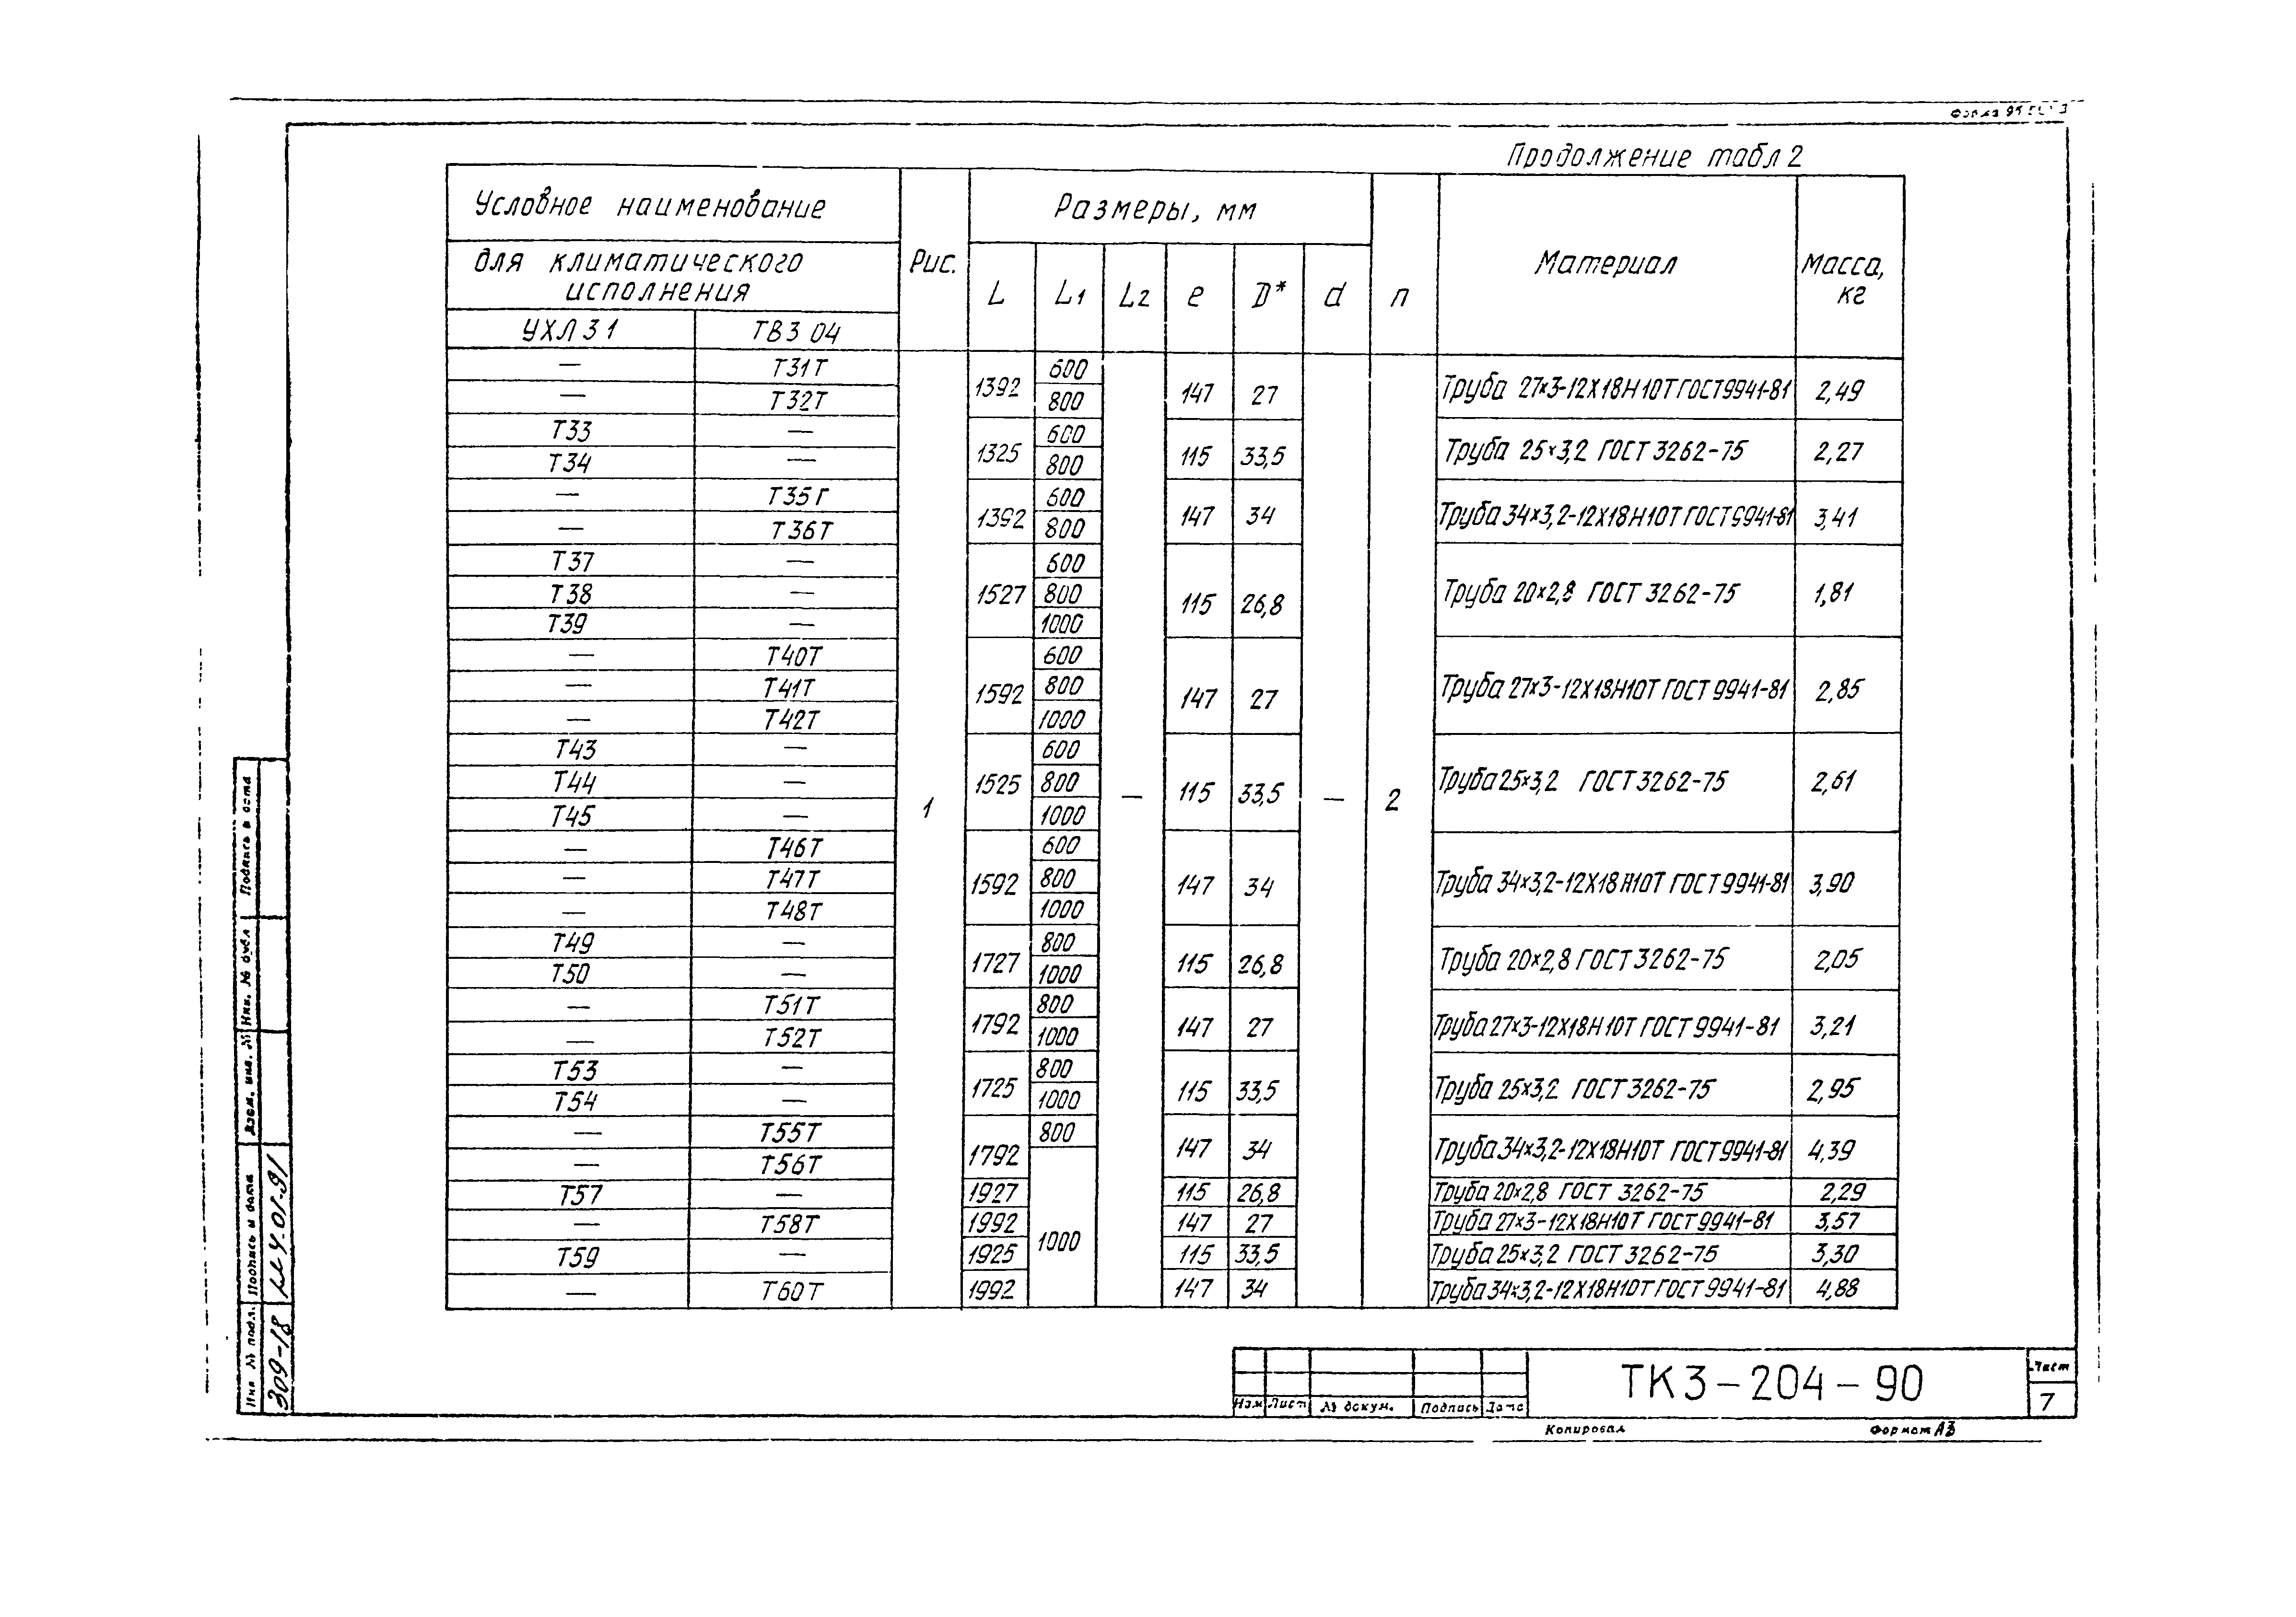 Продолжение табл 2
Условное наименование
Рис.
Размеры, мм
n
Материал
Масса, кг
для климатического исполнения
L
L1
L2
e
D*
d
УХЛ 3 1
ТВ3 04
— Т31Т 1 1392 600 — 147 27 — 2 Труба 27×3-12Х18Н10Т ГОСТ9941-81 2,49
— Т32Т 800
Т33 — 1325 600 115 33,5 Труба 25×3,2 ГОСТ 3262-75 2,27
Т34 — 800
— Т35Г 1392 600 147 34 Труба 34×3,2-12Х18Н10Т ГОСТ9941-81 3,41
— Т36Т 800
Т37 — 1527 600 115 26,8 Труба 20×2,8 ГОСТ 3262-75 1,81
Т38 — 800
Т39 — 1000
— Т40Т 1592 600 147 27 Труба 27×3-12Х18Н10Т ГОСТ 9941-81 2,85
— Т41Т 800
— Т42Т 1000
Т43 — 1525 600 115 33,5 Труба 25×3,2 ГОСТ 3262-75 2,61
Т44 — 800
Т45 — 1000
— Т46Т 1592 600 147 34 Труба 34×3,2-12Х18Н10Т ГОСТ 9941-81 3,90
— Т47Т 800
— Т48Т 1000
Т49 — 1727 800 115 26,8 Труба 20×2,8 ГОСТ 3262-75 2,05
Т50 — 1000
— Т51Т 1792 800 147 27 Труба 27×3-12Х18Н10Т ГОСТ 9941-81 3,21
— Т52Т 1000
Т53 — 1725 800 115 33,5 Труба 25×3,2 ГОСТ 3262-75 2,95
Т54 — 1000
— Т55Т 1792 800 147 34 Труба 34×3,2-12Х18Н10Т ГОСТ 9941-81 4,39
— Т56Т 1000
Т57 — 1927 115 26,8 Труба 20×2,8 ГОСТ 3262-75 2,29
— Т58Т 1992 147 27 Труба 27×3-12Х18Н10Т ГОСТ 9941-81 3,57
Т59 — 1925 115 33,5 Труба 25×3,2 ГОСТ 3262-75 3,30
— Т60Т 1992 147 34 Труба 34×3,2-12Х18Н10Т ГОСТ 9941-81 4,88
Подпись и дата
Инв. № дубл
Взам. инв. №
Подпись и дата
14.01.91
Инв № подл.
309-18
Изм Лист № докум. Подпись Дата
ТК3-204-90
Лист
7
Копировал
Формат А3